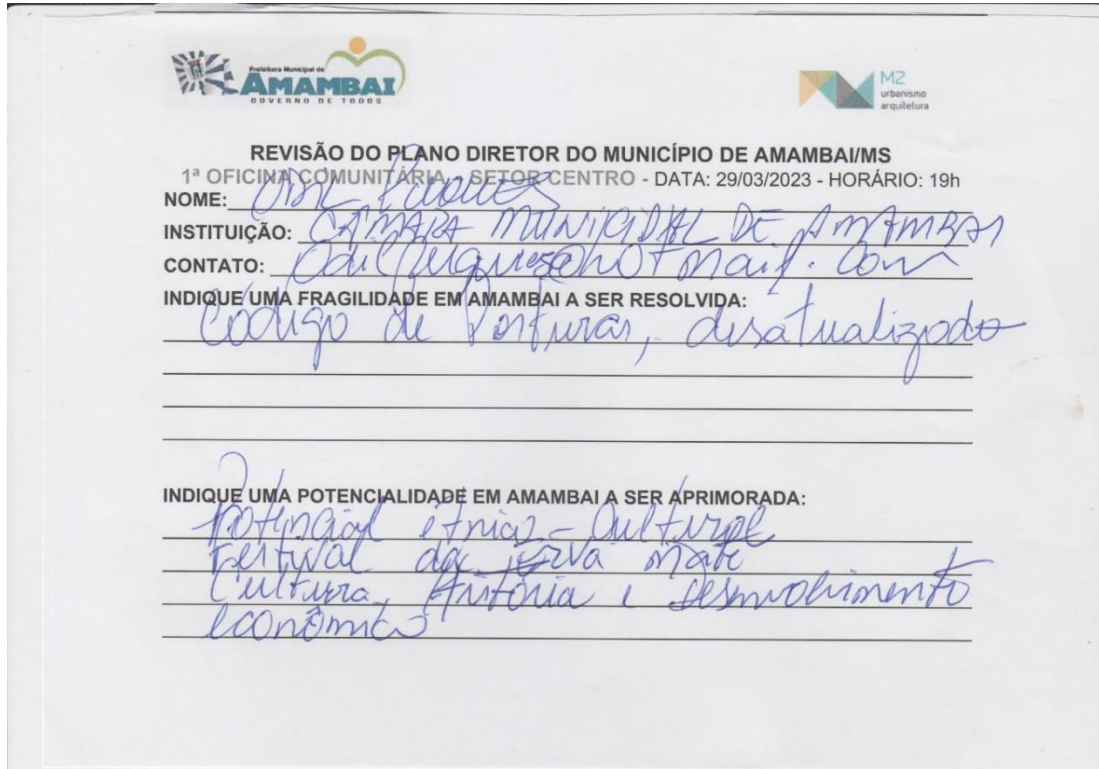 Prefeitura Municipal de
AMAMBAI
GOVERNO DE TODOS
M2
urbanismo
arquitetura
REVISÃO DO PLANO DIRETOR DO MUNICÍPIO DE AMAMBAI/MS
1ª OFICINA COMUNITÁRIA - SETOR CENTRO - DATA: 29/03/2023 - HORÁRIO: 19h
NOME:
INSTITUIÇÃO: CÂMARA MUNICIPAL DE AMAMBAI
CONTATO:
INDIQUE UMA FRAGILIDADE EM AMAMBAI A SER RESOLVIDA:
Código de Posturas, desatualizado
INDIQUE UMA POTENCIALIDADE EM AMAMBAI A SER APRIMORADA:
Potencial étnico-Cultural
Festival da Erva Mate
Cultura, história e desenvolvimento
econômico